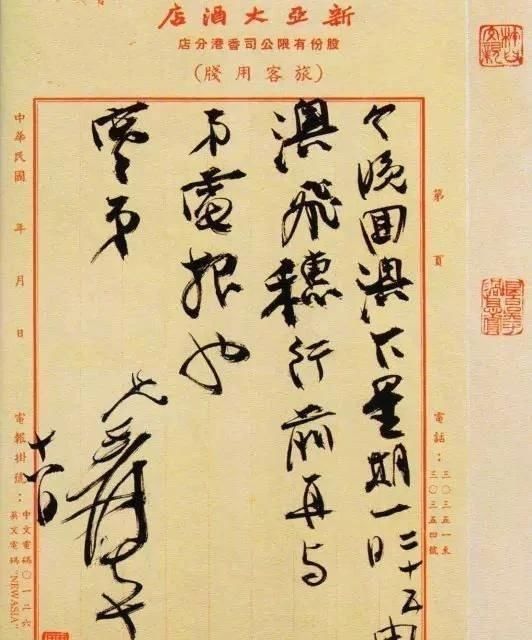 新亞大酒店
股份有限公司香港分店
(旅客用牋)
第 頁
電話：三〇三五一至
三〇三五四號
晚回澳下星期一日二十五由
澳飛穗行前再与
弟電報也
弟
兄爰
十八日
中華民國 年 月 日
電報掛號：中文電碼〇一二六
英文電碼"NEWASIA"